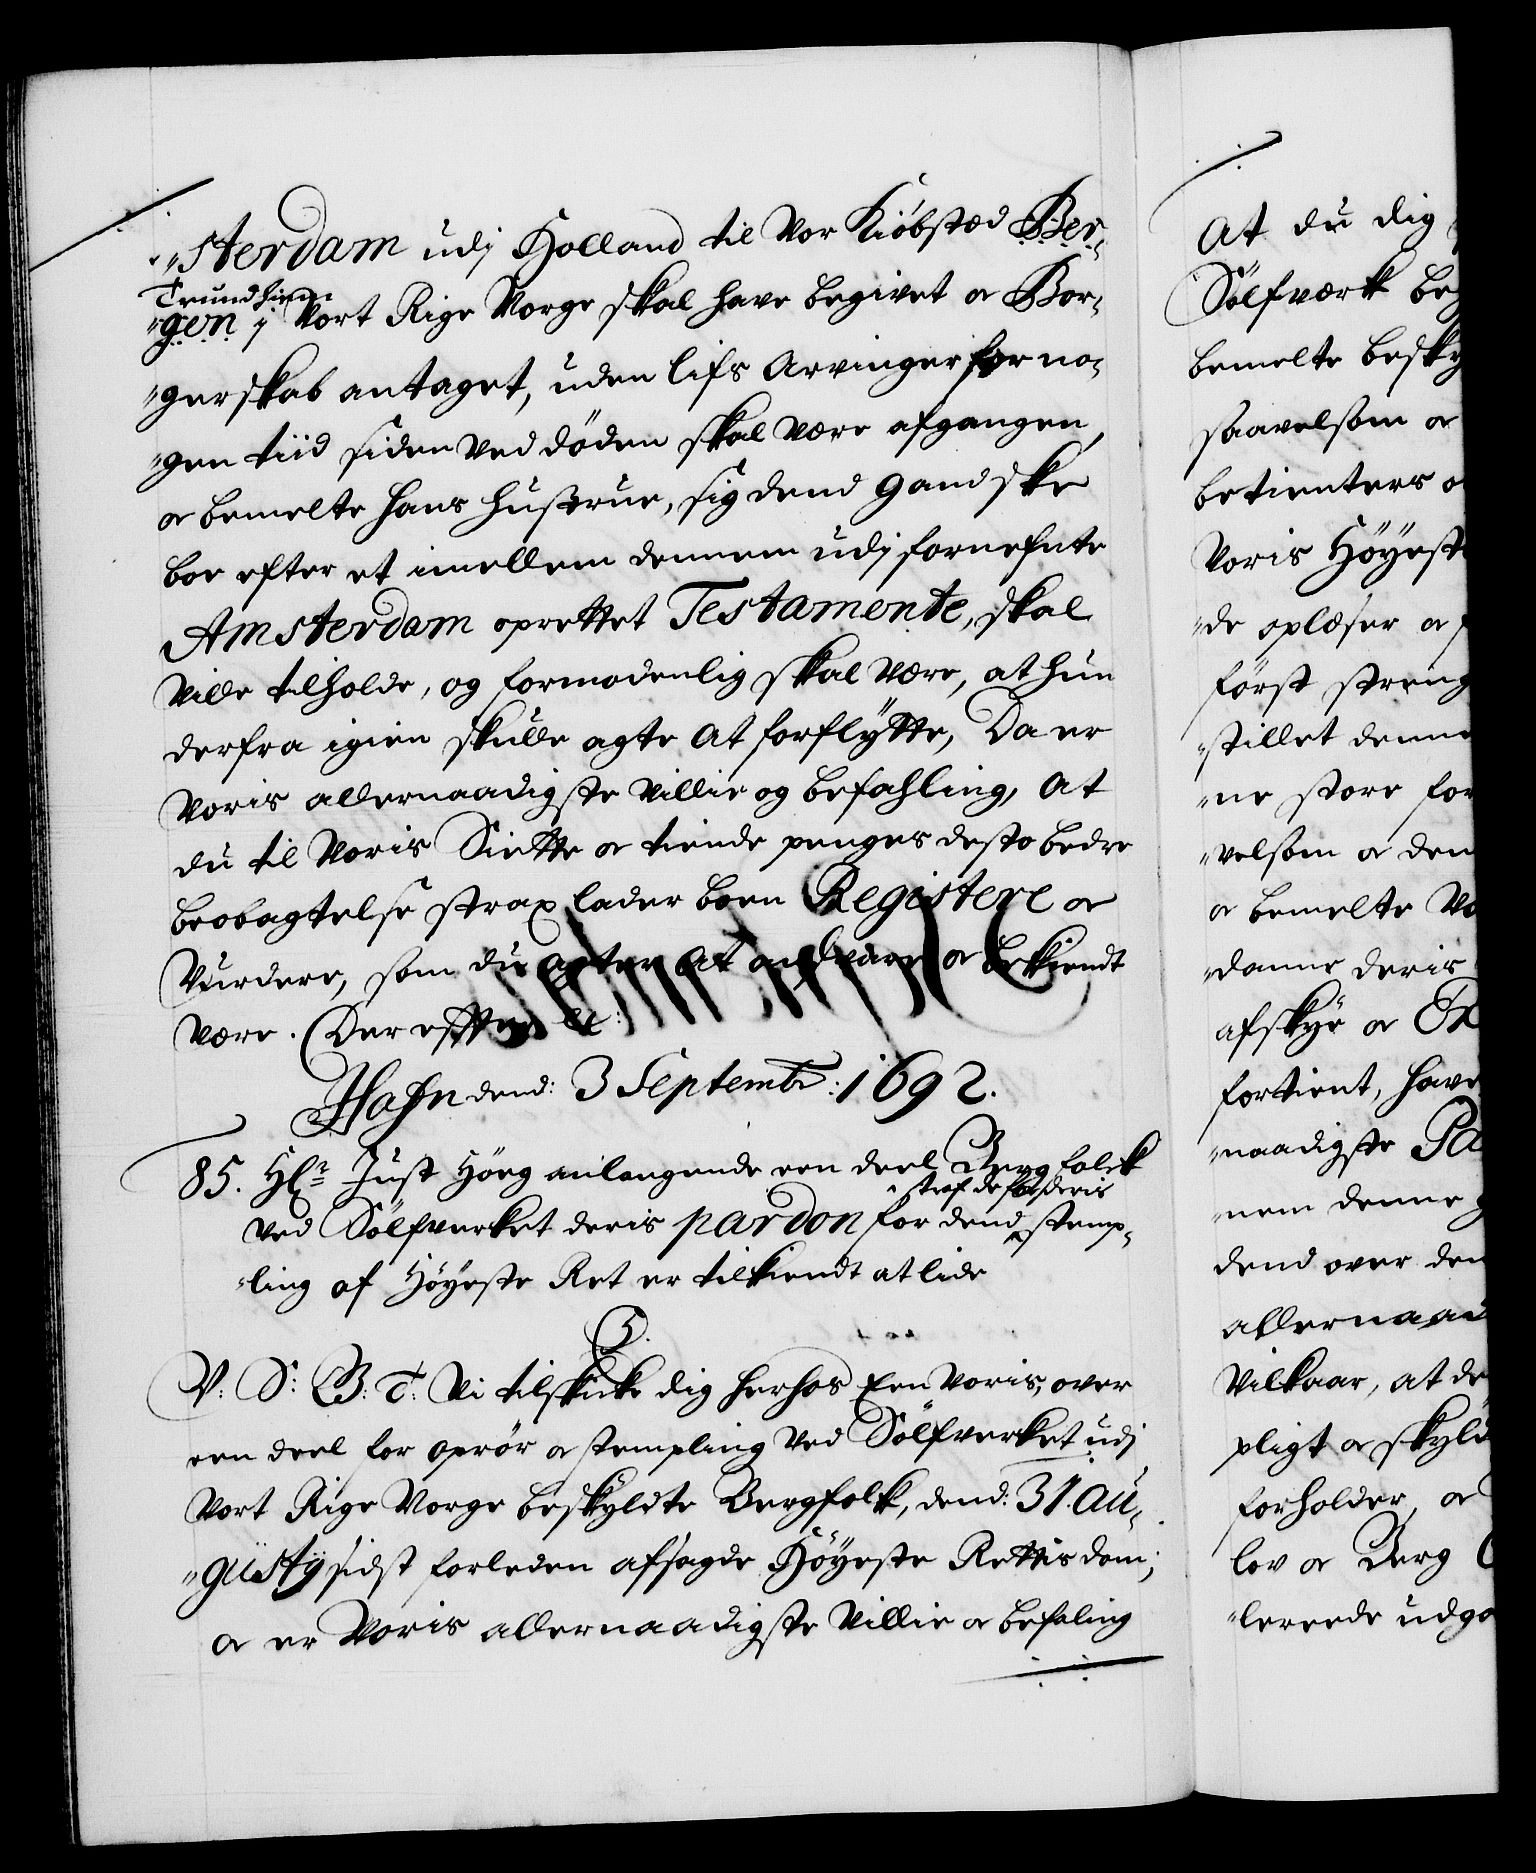 "sterdam udj Holland til Vor Kiöbsted Ber-
Trundhiem
"gen j Vort Rige Norge skal have begivet oc Bor-
"gerskab antaget, uden lifs Arvinger for no-
"gen tiid siden ved döden skal være afgangen,
oc bemelte hans hustrue, sig dend gandske
boe efter et imellem dennem udj fornefnte
Amsterdam oprettet Testamente, skal
ville tilholde, og formodenlig skal være, at hun
derfra igien skulle agte at forflÿtte, Da er
Voris allernaadigste Villie og befahling, at
du til Voris Siette oc tiende penges desto bedre
beobagtelse strax lader boen Registere oc
Vurdere, som du agter at andsvare oc bekiendt
være. Der efter &c:
Hafn dend: 3 Septembr: 1692.
85. Hr: Just Höeg anlangende een deel Bergfolck
straf de for deris
ved Sölfverket deris pardon for dend stemp-
"ling af Höÿeste Ret er tilkiendt at lide
C5.
V: S: G: T: Vi tilskicke dig herhos Een Voris, over
een deel for oprör oc stempling ved Sölfverket udj
Vort Rige Norge beskyldte Bergfolk, dend: 31. Au-
"gustÿ sidst forleden afsagde Höÿeste Rettis dom;
oc er Voris allernaadigste Villie oc befaling
At du dig
Sölfværk be
bemelte besky
saavelsom oc
betienters o
Voris Höÿest
"de oplæser oc
först streng
"stillet denne
"ne store for
"velsom oc den
oc bemelte Vo
"danne deris
afskÿe oc Ex
fortient, have
"naadigste Pa
"nem denne
dend over den
allernaad
Vilkaar, at de
pligt oc skyld
forholder, oc
lov oc Berg
"lerede udga